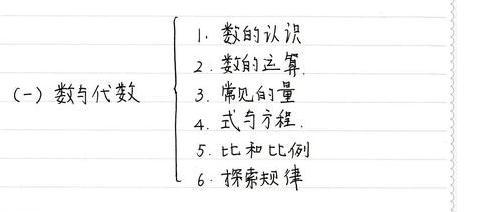 1. 数的认识
2. 数的运算.
(一) 数与代数
3. 常见的量
4. 式与方程.
5. 比和比例
6. 探索规律